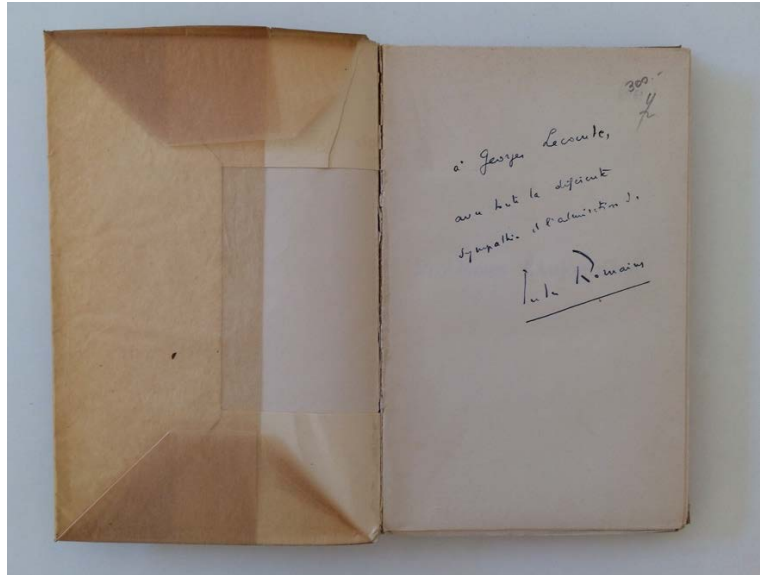 300.-
à Georges Lecomte,
avec toute la déférente
sympathie et l'admiration de
Jules Romains